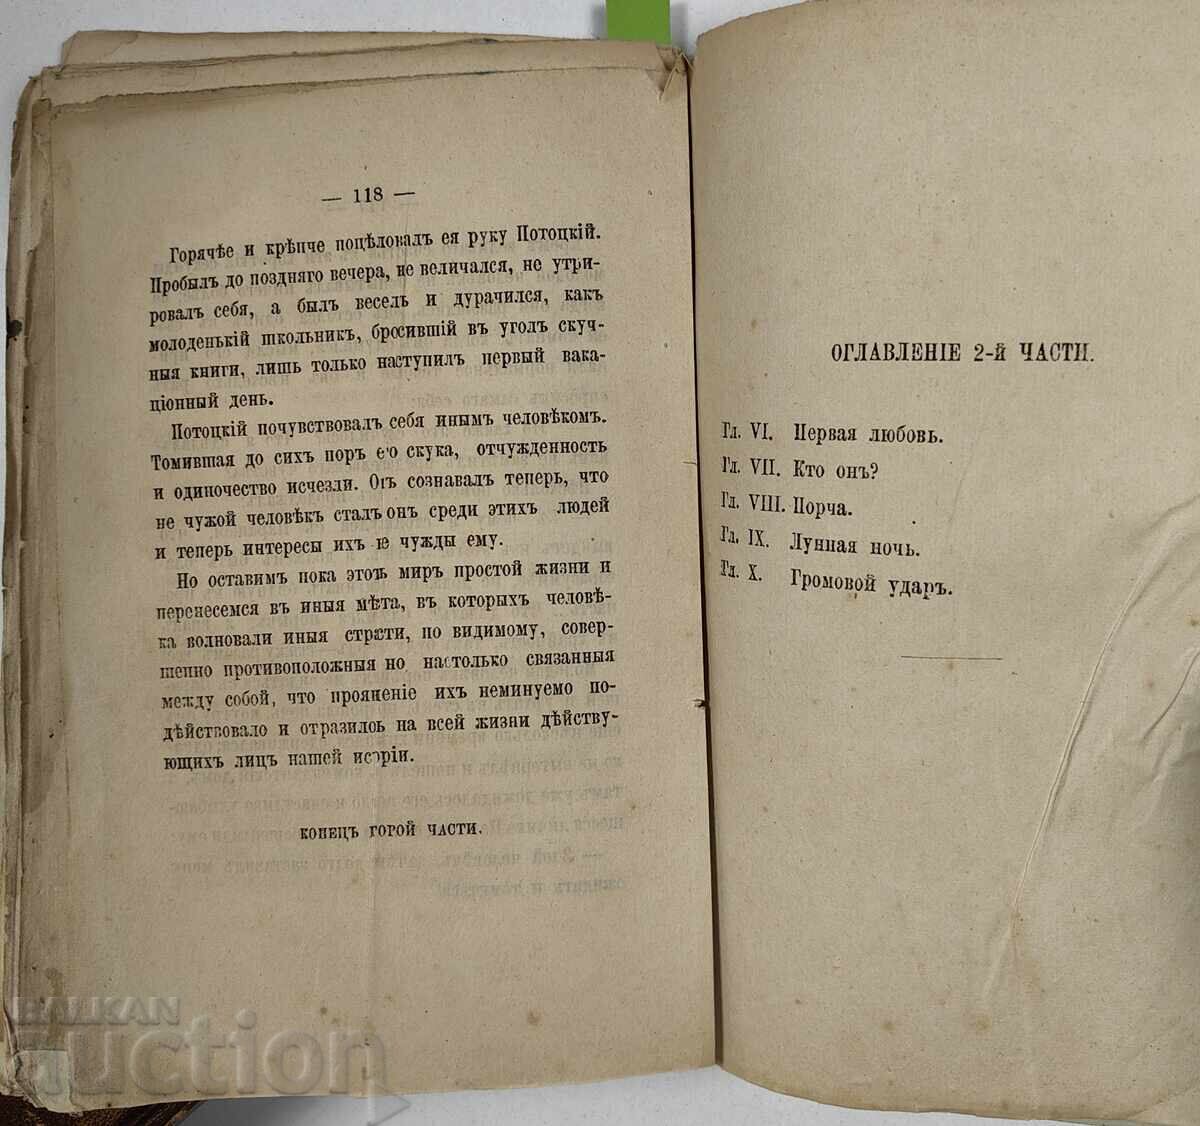 — 118 —
Горячѣе и крѣпче поцѣловалъ ея руку Потоцкій.
Пробылъ до поздняго вечера, не величался, не утри-
ровалъ себя, а былъ веселъ и дурачился, какъ
молоденькій школьникъ, бросившій въ уголъ скуч-
ныя книги, лишь только наступилъ первый вака-
ціонный день.
Потоцкій почувствовалъ себя инымъ человѣкомъ.
Томившая до сихъ поръ его скука, отчужденность
и одиночество исчезли. Онъ сознавалъ теперь, что
не чужой человѣкъ сталъ онъ среди этихъ людей
и теперь интересы ихъ не чужды ему.
Но оставимъ пока этотъ міръ простой жизни и
перенесемся въ иныя мѣта, въ которыхъ человѣ-
ка волновали иныя страсти, по видимому, совер-
шенно противоположныя но настолько связанныя
между собой, что проявленіе ихъ неминуемо по-
дѣйствовало и отразилось на всей жизни дѣйству-
ющихъ лицъ нашей исторіи.
КОНЕЦЪ ТОРОЙ ЧАСТИ.
ОГЛАВЛЕНІЕ 2-й ЧАСТИ.
Гл. VI. Первая любовь.
Гл. VII. Кто онъ?
Гл. VIII. Порча.
Гл. IX. Лунная ночь.
Гл. X. Громовой ударъ.
BALKAN
auction